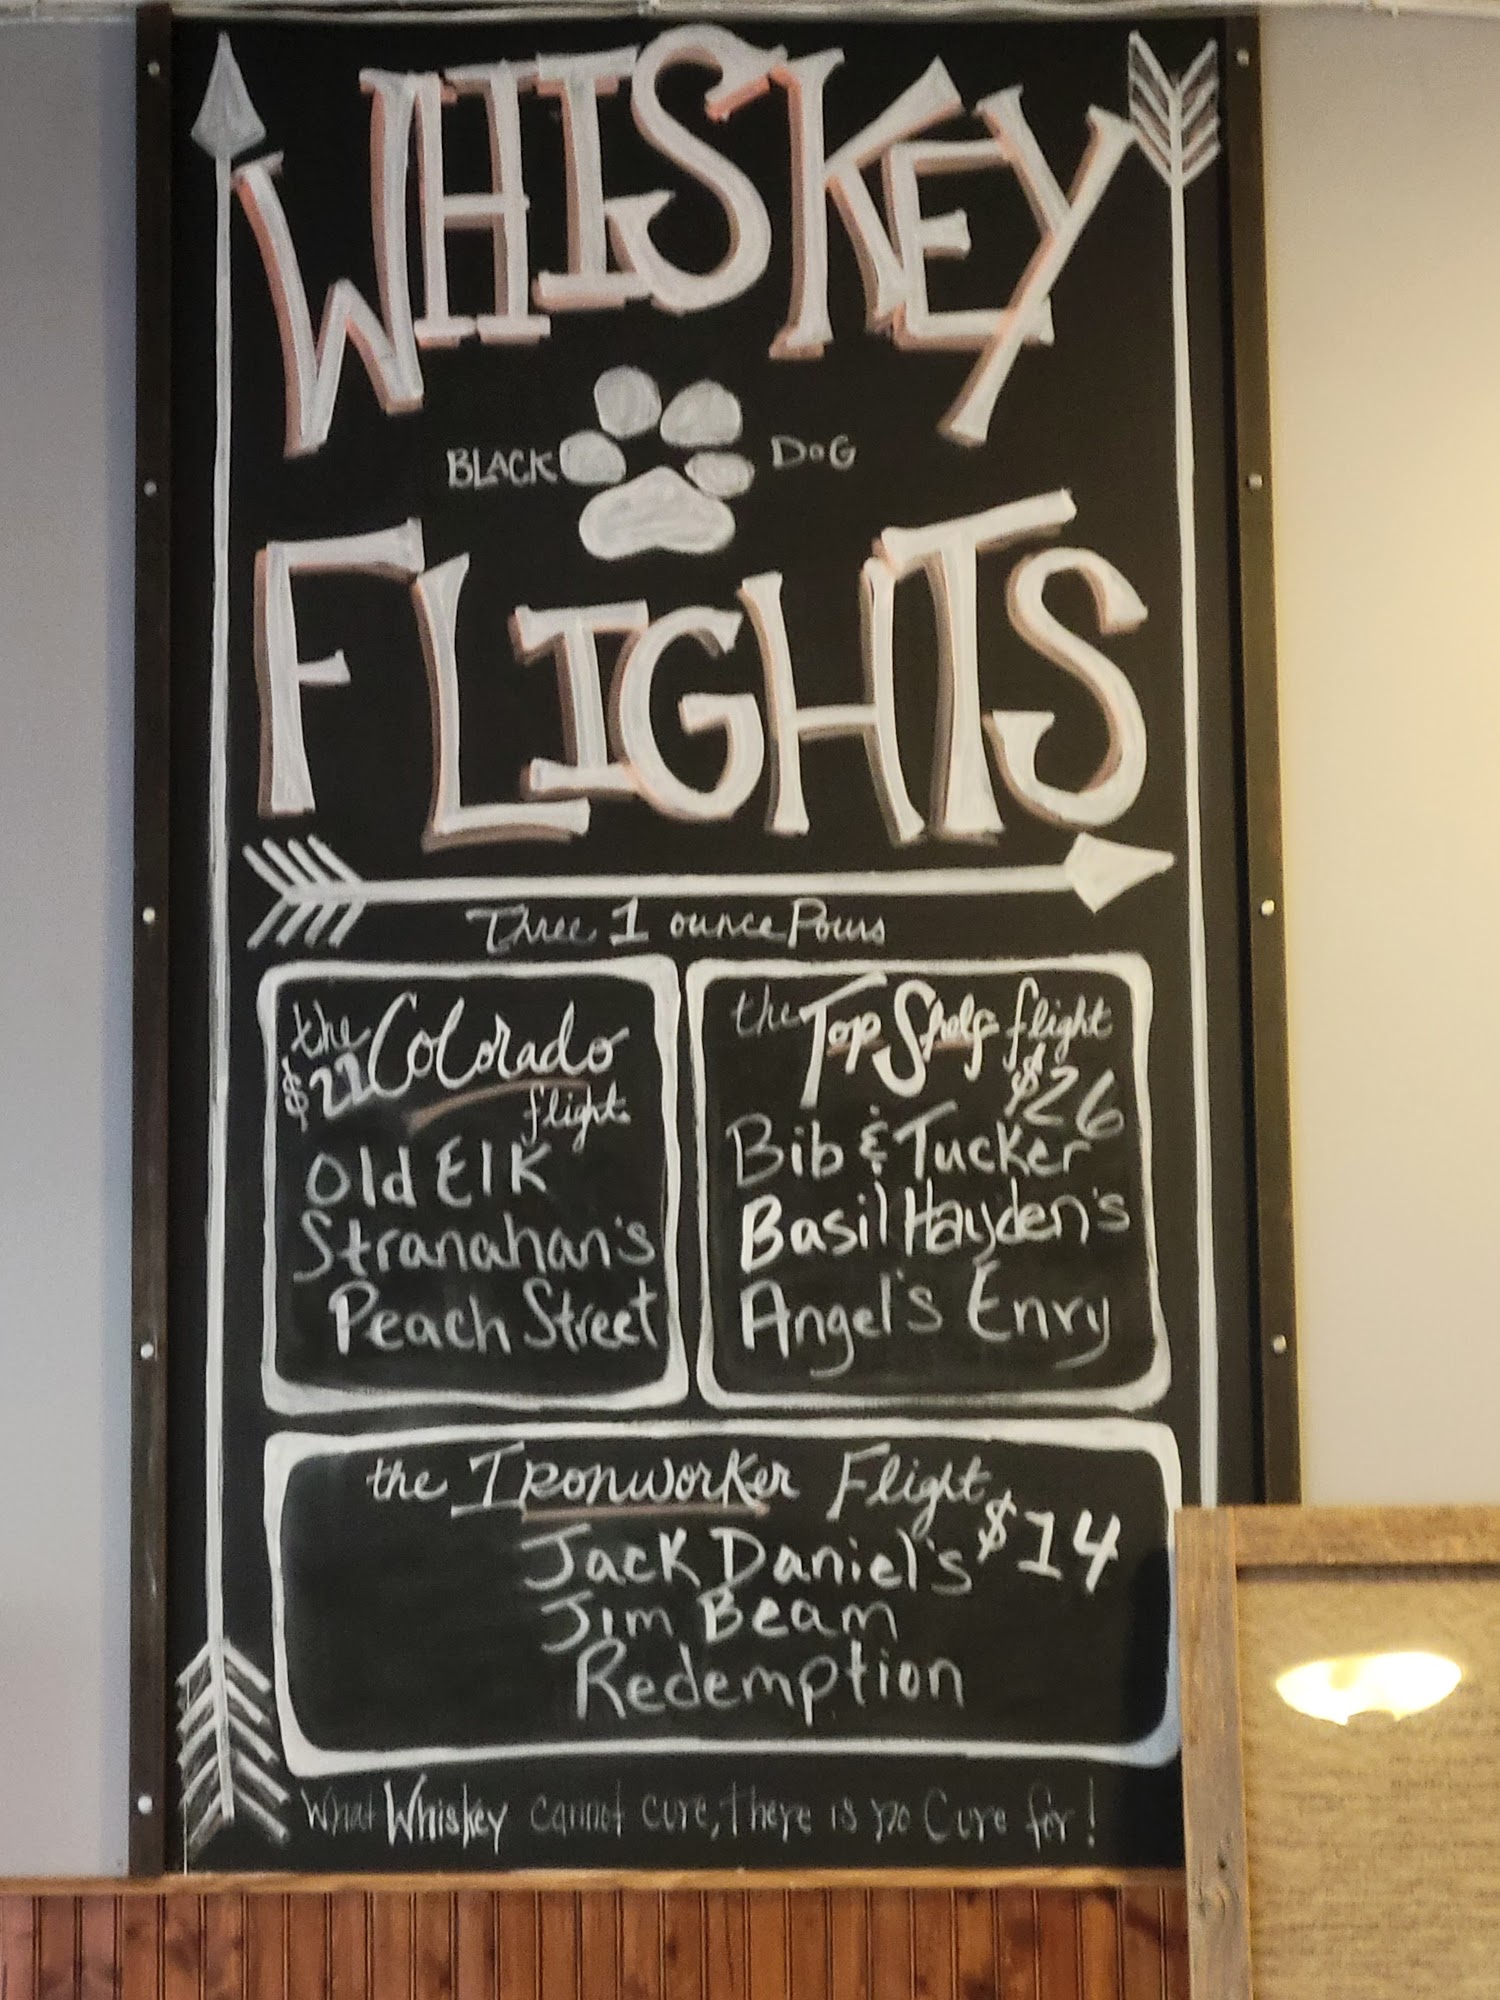 WHISKEY
BLACK DOG
FLIGHTS
Three 1 ounce Pours
the Colorado
$22 flight
Old Elk
Stranahan's
Peach Street
the Top Shelf flight
$26
Bib & Tucker
Basil Hayden's
Angel's Envy
the Ironworker Flight
$14
Jack Daniel's
Jim Beam
Redemption
What Whiskey cannot cure, there is no Cure for!